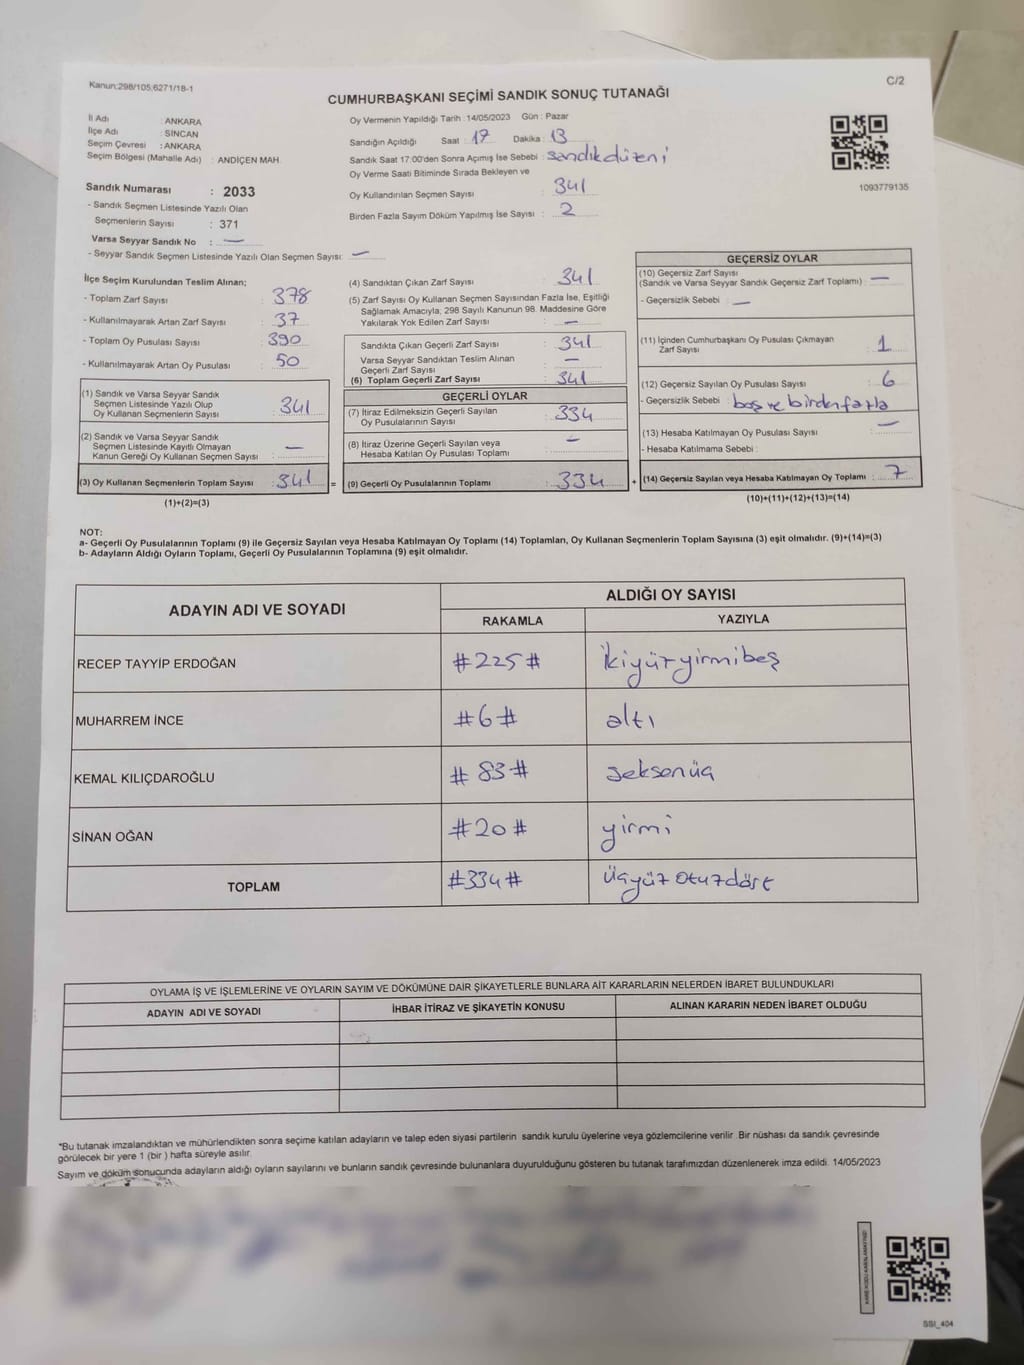 Kanun:298/105;6271/18-1
C/2
CUMHURBAŞKANI SEÇİMİ SANDIK SONUÇ TUTANAĞI
İl Adı : ANKARA
İlçe Adı : SİNCAN
Seçim Çevresi : ANKARA
Seçim Bölgesi (Mahalle Adı) : ANDİÇEN MAH.
Sandık Numarası : 2033
- Sandık Seçmen Listesinde Yazılı Olan
Seçmenlerin Sayısı : 371
Varsa Seyyar Sandık No : —
- Seyyar Sandık Seçmen Listesinde Yazılı Olan Seçmen Sayısı: —
Oy Vermenin Yapıldığı Tarih :14/05/2023 Gün : Pazar
Sandığın Açıldığı Saat : 17 Dakika : 13
Sandık Saat 17:00'den Sonra Açımış İse Sebebi : sandık düzeni
Oy Verme Saati Bitiminde Sırada Bekleyen ve
Oy Kullandırılan Seçmen Sayısı : 341
Birden Fazla Sayım Döküm Yapılmış İse Sayısı : 2
1093779135
İlçe Seçim Kurulundan Teslim Alınan;
- Toplam Zarf Sayısı : 378
- Kullanılmayarak Artan Zarf Sayısı : 37
- Toplam Oy Pusulası Sayısı : 390
- Kullanılmayarak Artan Oy Pusulası : 50
(1) Sandık ve Varsa Seyyar Sandık
Seçmen Listesinde Yazılı Olup
Oy Kullanan Seçmenlerin Sayısı : 341
(2) Sandık ve Varsa Seyyar Sandık
Seçmen Listesinde Kayıtlı Olmayan
Kanun Gereği Oy Kullanan Seçmen Sayısı : —
(3) Oy Kullanan Seçmenlerin Toplam Sayısı : 341
(1)+(2)=(3)
(4) Sandıktan Çıkan Zarf Sayısı : 341
(5) Zarf Sayısı Oy Kullanan Seçmen Sayısından Fazla İse, Eşitliği
Sağlamak Amacıyla, 298 Sayılı Kanunun 98. Maddesine Göre
Yakılarak Yok Edilen Zarf Sayısı : —
Sandıkta Çıkan Geçerli Zarf Sayısı : 341
Varsa Seyyar Sandıktan Teslim Alınan
Geçerli Zarf Sayısı : —
(6) Toplam Geçerli Zarf Sayısı : 341
GEÇERLİ OYLAR
(7) İtiraz Edilmeksizin Geçerli Sayılan
Oy Pusulalarının Sayısı : 334
(8) İtiraz Üzerine Geçerli Sayılan veya
Hesaba Katılan Oy Pusulası Toplamı : —
= (9) Geçerli Oy Pusulalarının Toplamı : 334
GEÇERSİZ OYLAR
(10) Geçersiz Zarf Sayısı
(Sandık ve Varsa Seyyar Sandık Geçersiz Zarf Toplamı) : —
- Geçersizlik Sebebi : —
(11) İçinden Cumhurbaşkanı Oy Pusulası Çıkmayan
Zarf Sayısı : 1
(12) Geçersiz Sayılan Oy Pusulası Sayısı : 6
- Geçersizlik Sebebi : boş ve birden fazla
(13) Hesaba Katılmayan Oy Pusulası Sayısı : —
- Hesaba Katılmama Sebebi :
+ (14) Geçersiz Sayılan veya Hesaba Katılmayan Oy Toplamı : 7
(10)+(11)+(12)+(13)=(14)
NOT:
a- Geçerli Oy Pusulalarının Toplamı (9) ile Geçersiz Sayılan veya Hesaba Katılmayan Oy Toplamı (14) Toplamları, Oy Kullanan Seçmenlerin Toplam Sayısına (3) eşit olmalıdır. (9)+(14)=(3)
b- Adayların Aldığı Oyların Toplamı, Geçerli Oy Pusulalarının Toplamına (9) eşit olmalıdır.
ADAYIN ADI VE SOYADI
ALDIĞI OY SAYISI
RAKAMLA YAZIYLA
RECEP TAYYİP ERDOĞAN #225# ikiyüzyirmibeş
MUHARREM İNCE #6# altı
KEMAL KILIÇDAROĞLU #83# seksenüç
SİNAN OĞAN #20# yirmi
TOPLAM #334# üçyüz otuzdört
OYLAMA İŞ VE İŞLEMLERİNE VE OYLARIN SAYIM VE DÖKÜMÜNE DAİR ŞİKAYETLERLE BUNLARA AİT KARARLARIN NELERDEN İBARET BULUNDUKLARI
ADAYIN ADI VE SOYADI İHBAR İTİRAZ VE ŞİKAYETİN KONUSU ALINAN KARARIN NEDEN İBARET OLDUĞU
*Bu tutanak imzalandıktan ve mühürlendikten sonra seçime katılan adayların ve talep eden siyasi partilerin sandık kurulu üyelerine veya gözlemcilerine verilir. Bir nüshası da sandık çevresinde
görülecek bir yere 1 (bir ) hafta süreyle asılır.
Sayım ve döküm sonucunda adayların aldığı oyların sayılarını ve bunların sandık çevresinde bulunanlara duyurulduğunu gösteren bu tutanak tarafımızdan düzenlenerek imza edildi. 14/05/2023
SSİ_404